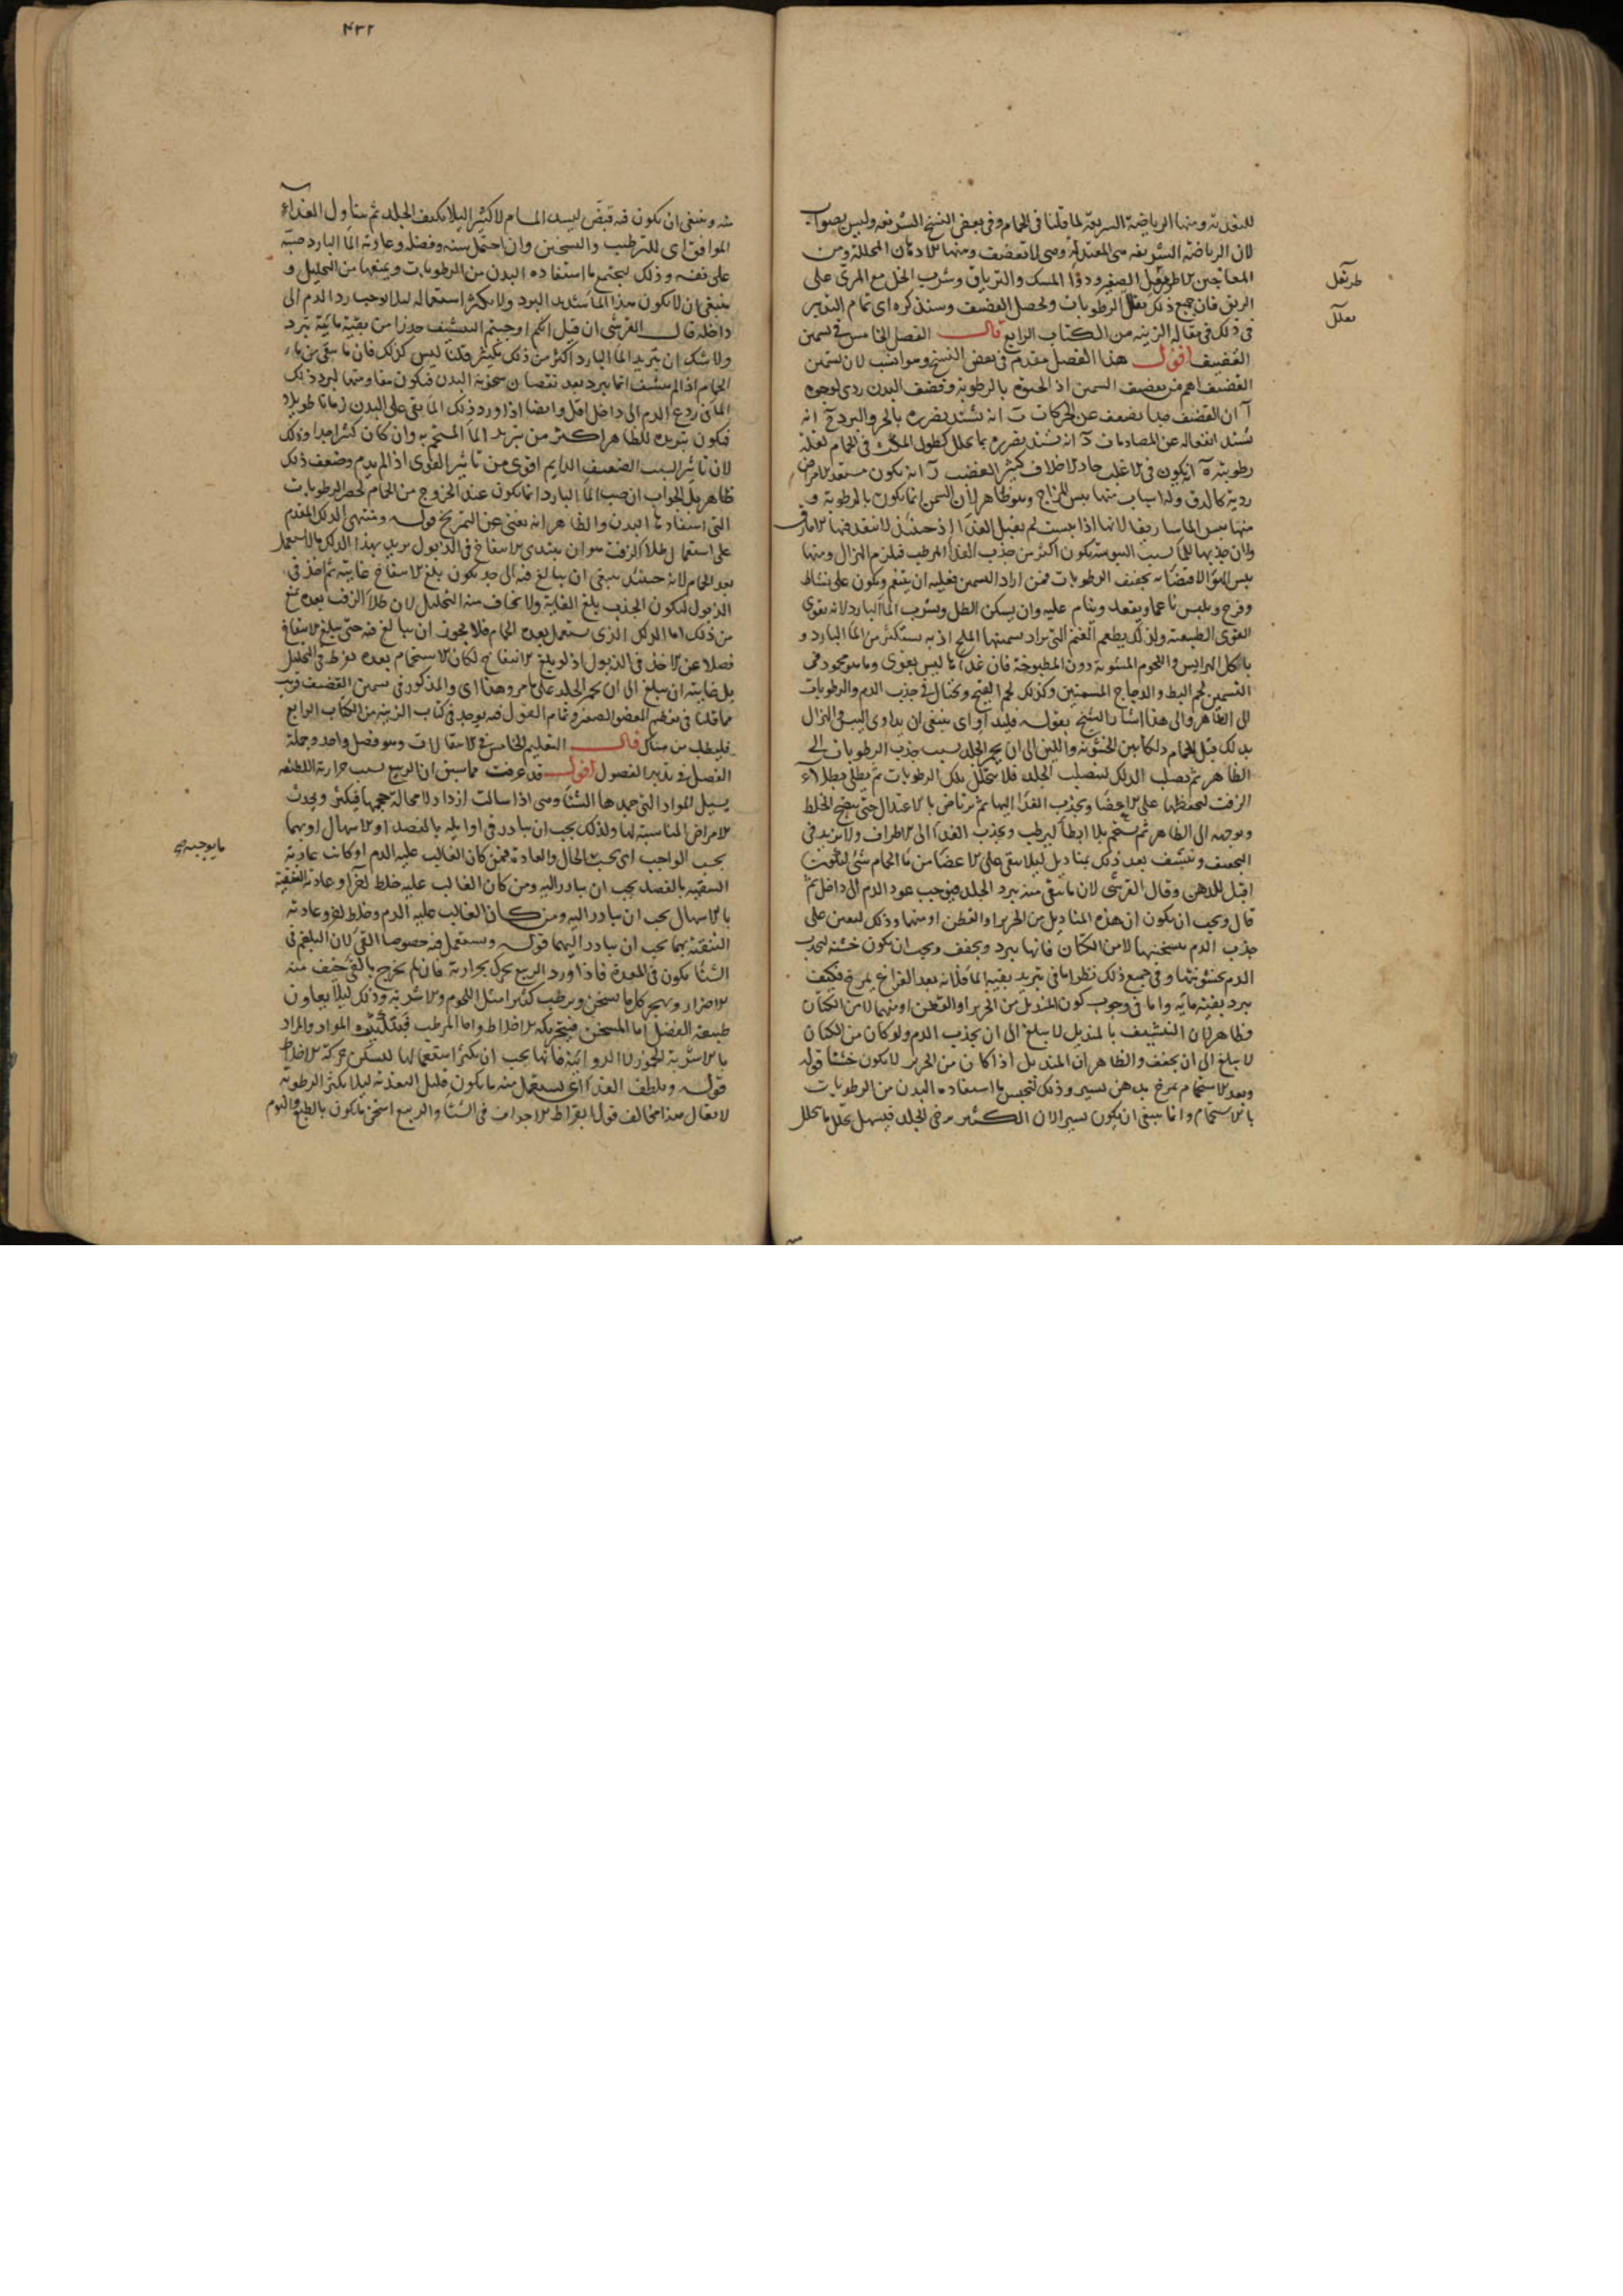 للتغذية ومنها الرياضة السريعة لما قلنا في الحمام وفي بعض النسخ الشريفة وليس بصواب
لان الرياضة الشريفة هي المعتدلة وهي لا تقضف ومنها الادهان المحللة ومن
المعاجين الاطريفل الصغير ودواء المسك والترياق وشرب الخل مع المري على
الريق فان جميع ذلك يقلل الرطوبات ويحصل القضف وسنذكره اي تمام التدبير
في ذلك في مقالة الزينة من الكتاب الرابع قال الفصل الخامس في تسمين
القضيف اقول هذا الفصل مقدم في بعض النسخ وهو انسب لان تسمين
القضيف اهم من تقضيف السمين اذ الحيوة بالرطوبة وقضف البدن ردي لوجوه
آ ان القضيف جدا يضعف عن الحركات ب انه يشتد تضرره بالحر والبرد ج انه
يشتد انفعاله عن المصادمات د انه يشتد تضرره بما يحلل كطول المكث في الحمام لقلة
رطوبته ه انه يكون في الاغلب حاد الاخلاق كثير الغضب و انه يكون مستعدا لامراض
ردية كالدق وله اسباب منها يبس المزاج وهو ظاهر لان السمن انما يكون بالرطوبة و
منها يبس الماساريقا لانها اذا يبست لم يقبل الغذاء اذ حينئذ لا ينفذ فيها
ولان جذبها للماء بسبب اليبوسة يكون اكثر من جذب الغذاء المرطب فيلزم الهزال ومنها
يبس الهواء لاقتضائه تجفيف الرطوبات فمن اراد السمين فعليه ان يتنعم ويكون على نشاط
وفرح ويلبس ناعما ويقعد وينام عليه وان يسكن الظل ويشرب الماء البارد لانه يقوي
القوى الطبيعية ولذلك يطعم الغنم التي يراد سمنها الملح اذ به يستكثر من الماء البارد و
ياكل الهرايس واللحوم المشوية دون المطبوخة فان غذاءها ليس بقوي ومما هو محمود في
التسمين لحم البط والدجاج المسمنين وكذلك لحم القبج ويحتال في جذب الدم والرطوبات
الى الظاهر والى هذا اشار الشيخ بقوله فليداو اي ينبغي ان يداوى اليبس في الهزال
بدلك قبل الحمام دلكا بين الخشونة واللين الى ان يحمر الجلد بسبب جذب الرطوبات الى
الظاهر ثم يصلب الدلك ليتصلب الجلد فلا يتحلل تلك الرطوبات ثم يطلى بطلاء
الزفت لتحفظها على الاعضاء ويجذب الغذاء اليها ثم يرتاض بالاعتدال حتى ينضج الخلط
ويوجهه الى الظاهر ثم يستحم بلا ابطاء ليرطب ويجذب الغذاء الى الاطراف ولا يزيد في
التجفيف وينشف بعد ذلك بمناديل ليلا يبقى على الاعضاء من ماء الحمام شيء ليكون
اقبل للدهن وقال القرشي لان ما يبقى منه يبرد الجلد فيوجب عود الدم الى داخل ثم
قال ويجب ان يكون هذه المناديل من الحرير او القطن او منهما وذلك ليعين على
جذب الدم بتسخينها لا من الكتان فانها يبرد ويجفف ويجب ان يكون خشنة لتجذب
الدم بخشونتها وفي جميع ذلك نظر اما في تبريد بقية الماء فلانه بعد الفراغ يمرخ فكيف
يبرد بقية مائه واما في وجوب كون المنديل من الحرير او القطن او منهما لا من الكتان
فظاهر لان التنشيف بالمنديل لا يبلغ الى ان يجذب الدم ولو كان من الكتان
لا يبلغ الى ان يجفف والظاهر ان المنديل اذا كان من الحرير لا يكون خشنا قوله
وبعد الاستحمام يمرخ بدهن يسير وذلك لتحبس ما استفاده البدن من الرطوبات
بالاستحمام وانما ينبغي ان يكون يسيرا لان الكثير يرخي الجلد فيسهل تحلل ما يحلل
طريفل
يقلل
٤٣٢
منه وينبغي ان يكون فيه قبض ليسد المسام لا كثيرا ليلا يكثف الجلد ثم يتناول الغذاء
الموافق اي للترطيب والتسخين وان احتمل سنه وفصله وعادته الماء البارد صبه
على نفسه وذلك ليجتمع ما استفاده البدن من الرطوبات ويمنعها من التحليل و
ينبغي ان لا يكون هذا الماء شديد البرد ولا يكثر استعماله ليلا يوجب رد الدم الى
داخله قال القرشي ان قيل انكم اوجبتم التنشيف حذرا من بقية مائية تبرد
ولا شك ان تبريد الماء البارد اكثر من ذلك بكثير قلنا ليس كذلك فان ما يبقى من ماء
الحمام اذا لم ينشف انما يبرد بعد نقصان سخونة البدن فيكون مقاومتها لبرد ذلك
الماء في ردع الدم الى داخل اقل وايضا اذا ورد ذلك الماء بقي على البدن زمانا طويلا
فيكون تبريده للظاهر اكثر من تبريد الماء المستحم به وان كان كثيرا جدا وذلك
لان تاثير السبب الضعيف الدايم اقوى من تاثير القوي اذا لم يدم وضعف ذلك
ظاهر بل الجواب ان صب الماء البارد انما يكون عند الخروج من الحمام لحصر الرطوبات
التي استفادها البدن والظاهر انه يغني عن التمريخ قوله ومنتهى الدلك المقدم
على استعمال طلاء الزفت هو ان يبتدي الانتفاخ في الذبول يريد بهذا الدلك ما لا يستعمل
بعد الحمام لانه حينئذ ينبغي ان يبالغ فيه الى حد يكون يبلغ الانتفاخ غايته ثم اخذ في
الذبول ليكون الجذب بلغ الغاية ولا يخاف منه التحليل لان طلاء الزفت بعده يمنع
من ذلك اما الدلك الذي يستعمل بعده الحمام فلا يجوز ان يبالغ فيه حتى يبلغ الانتفاخ
فضلا عن الاخذ في الذبول اذ لو بلغ الانتفاخ لكان الاستحمام بعده يفرط في التحليل
بل غايته ان يبلغ الى ان يحمر الجلد على ما مر وهذا اي والمذكور في تسمين القضيف قريب
مما قلنا في تعظيم العضو الصغير وتمام القول فيه يوجد في كتاب الزينة من الكتاب الرابع
فليطلب من هناك قال التعليم الخامس في الانتقالات وهو فصل واحد وجملة
الفصل في تدبير الفصول اقول قد عرفت مما سبق ان الربيع بسبب حرارته اللطيفة
يسيل المواد التي جمدها الشتاء وهي اذا سالت ازداد لا محالة حجمها فيكثر ويحدث
الامراض المناسبة لها ولذلك يجب ان يبادر في اوايله بالفصد او الاسهال او بهما
بحسب الواجب اي بحسب الحال والعادة فمن كان الغالب عليه الدم او كانت عادته
التنقية بالفصد يجب ان يبادر اليه ومن كان الغالب عليه خلط اخر او عادته التنقية
بالاسهال يجب ان يبادر اليه ومن كان الغالب عليه الدم وخلط اخر وعادته
التنقية بهما يجب ان يبادر اليهما قوله ويستعمل فيه خصوصا القيء لان البلغم في
الشتاء يكون في المعدة فاذا ورد الربيع تحرك بحرارته فان لم يخرج بالقيء خيف منه
الاضرار ويهجر كل ما يسخن ويرطب كثيرا مثل اللحوم والاشربة وذلك ليلا يعاون
طبيعة الفصل اما المسخن فبتحريكه الاخلاط واما المرطب فبتكثيره المواد والمراد
بالاشربة الخمور لا الدوائية فانها يجب ان يكثر استعمالها لتسكين حركة الاخلاط
قوله ويلطف الغذاء اي يستعمل منه ما يكون قليل التغذية ليلا يكثر الرطوبة
لا يقال هذا مخالف قول ابقراط الاجواف في الشتاء والربيع اسخن ما يكون بالطبع والنوم
ما يوجبه